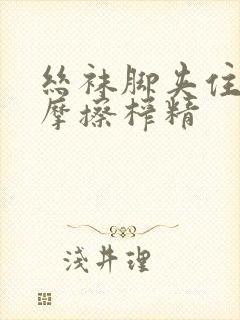 絲袜脚夹住
摩擦榨精
浅井理